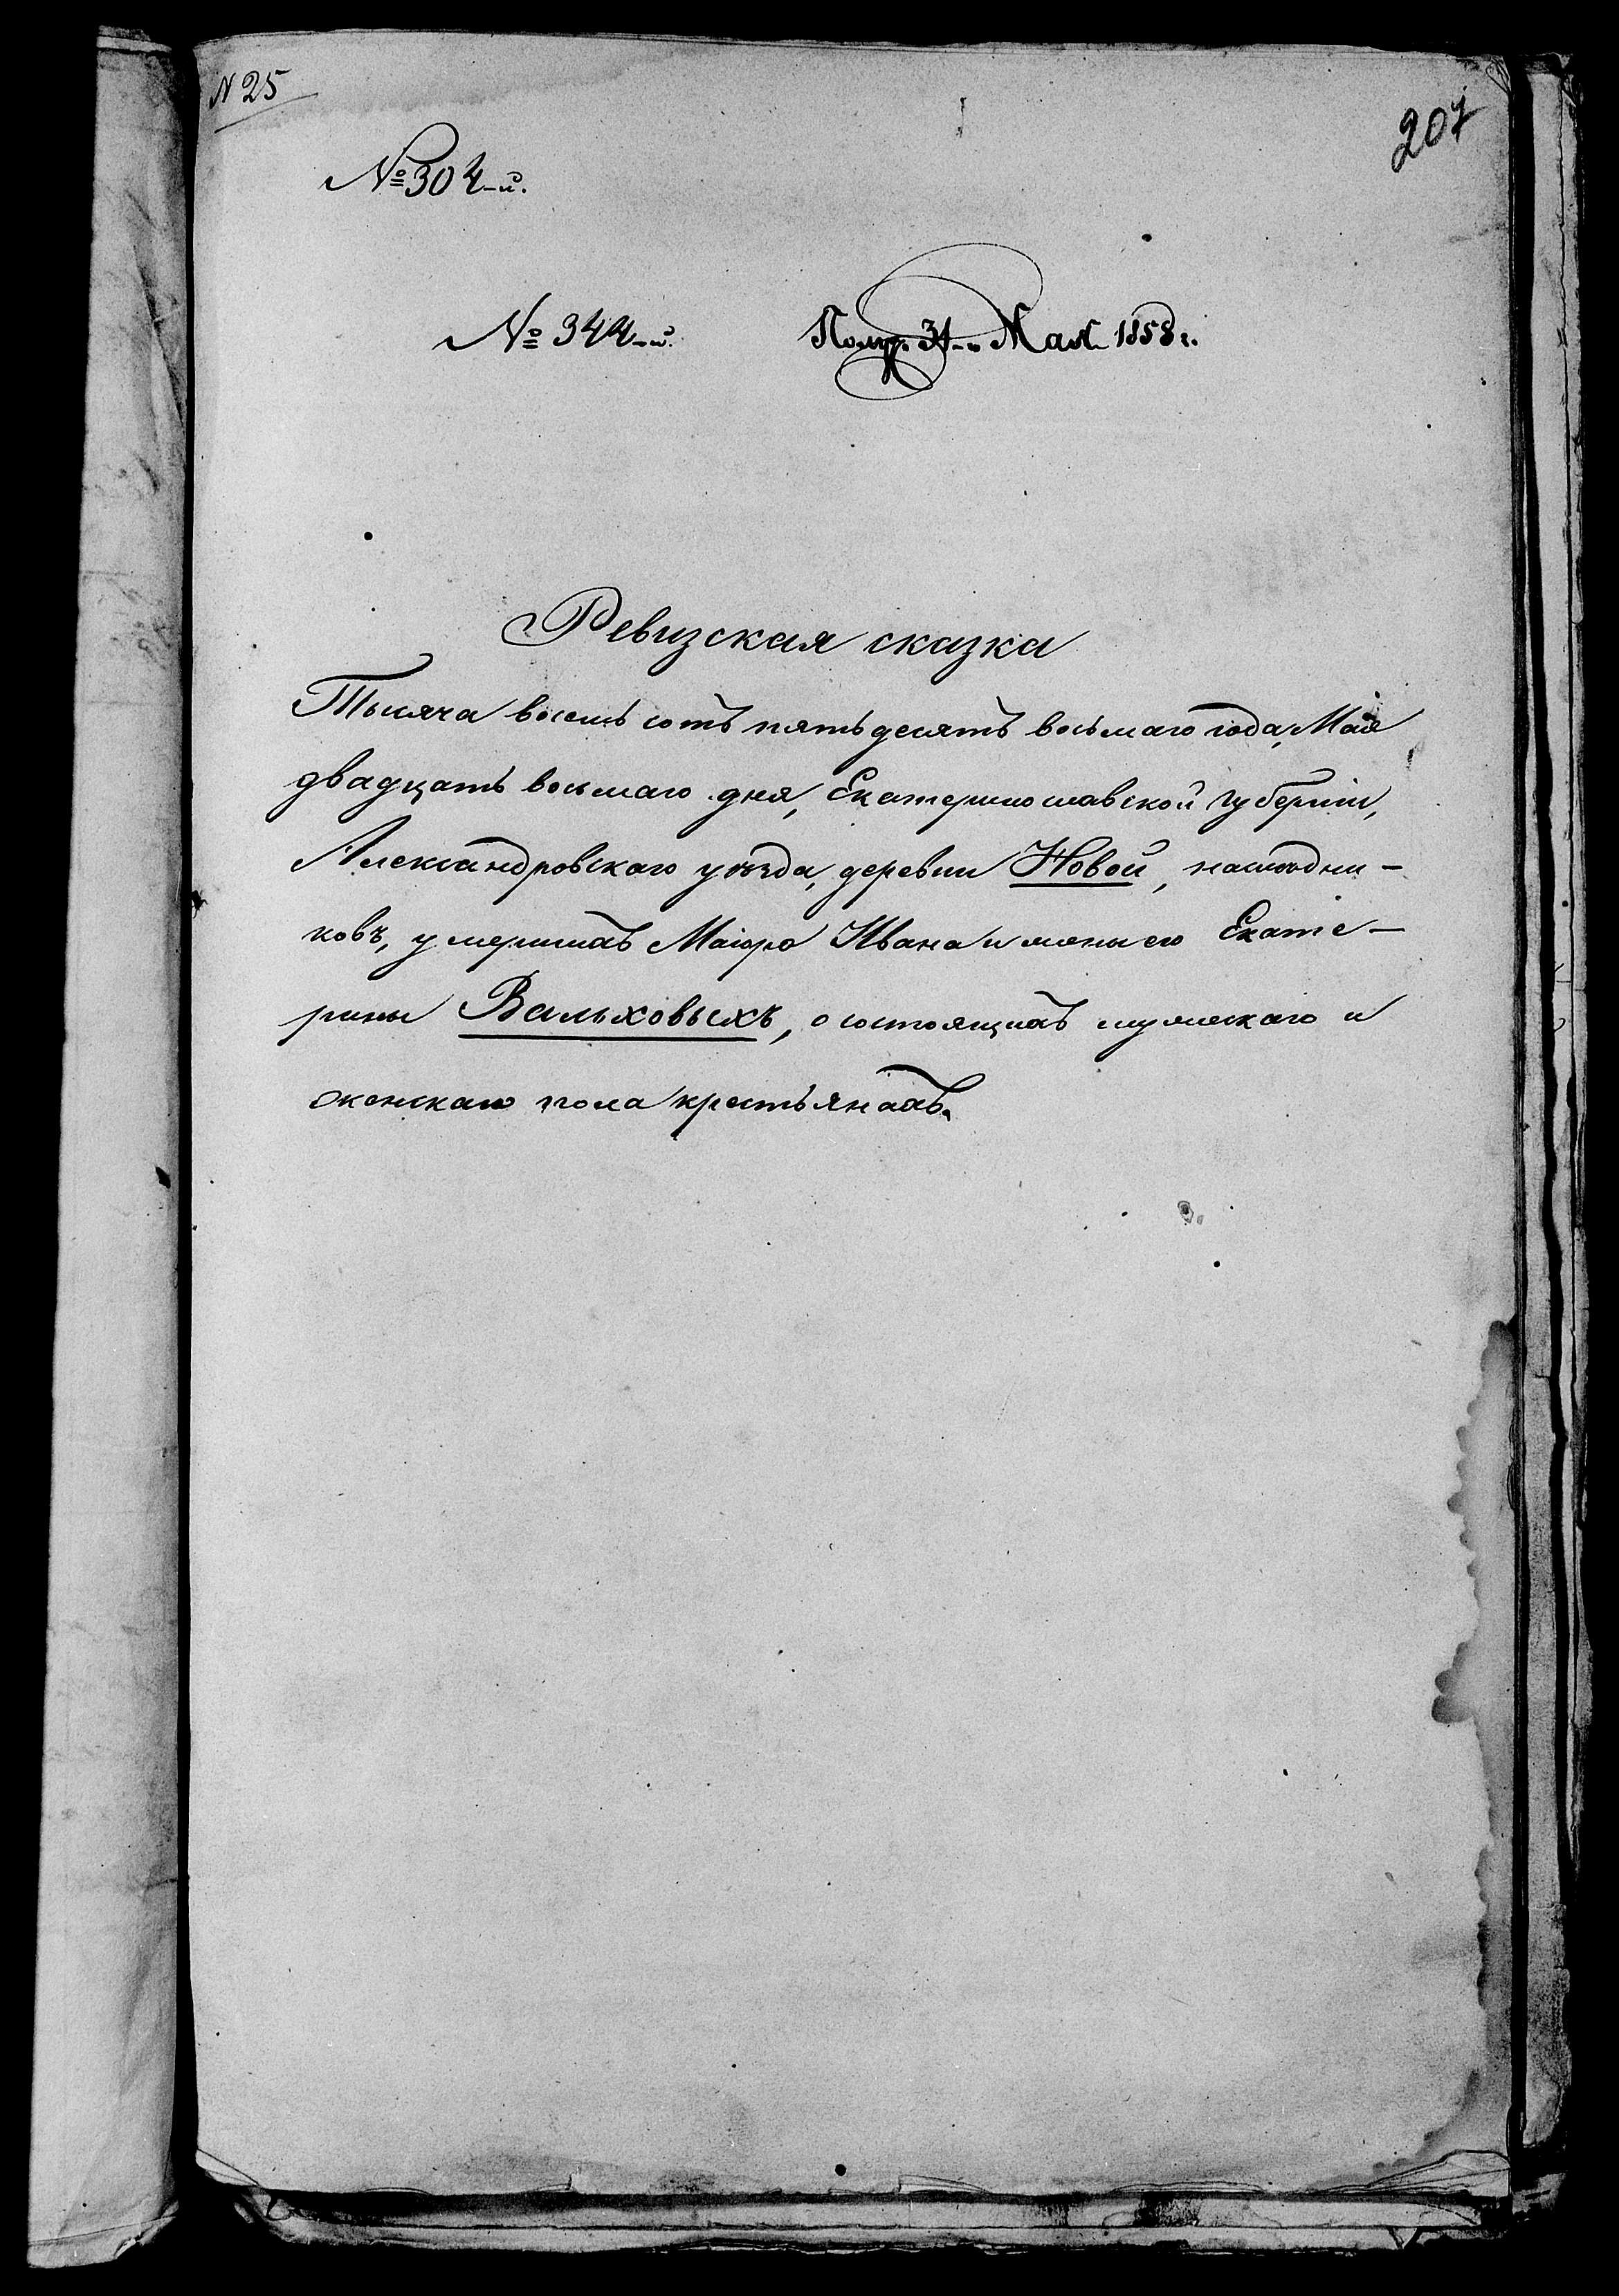 N 25
207
№ 304-й.
№ 344-й. Получ. 31-го Мая 1858 г.
Ревизская сказка
Тысяча восемь сотъ пятьдесятъ восьмаго года, Маія
двадцать восьмаго дня, Екатеринославской губерніи,
Александровскаго уѣзда, деревни Новой, наслѣдни-
ковъ, умершихъ Маіора Ивана и жены его Екате-
рины Вальховыхъ, о состоящихъ мужескаго и
женскаго пола крестьянахъ.